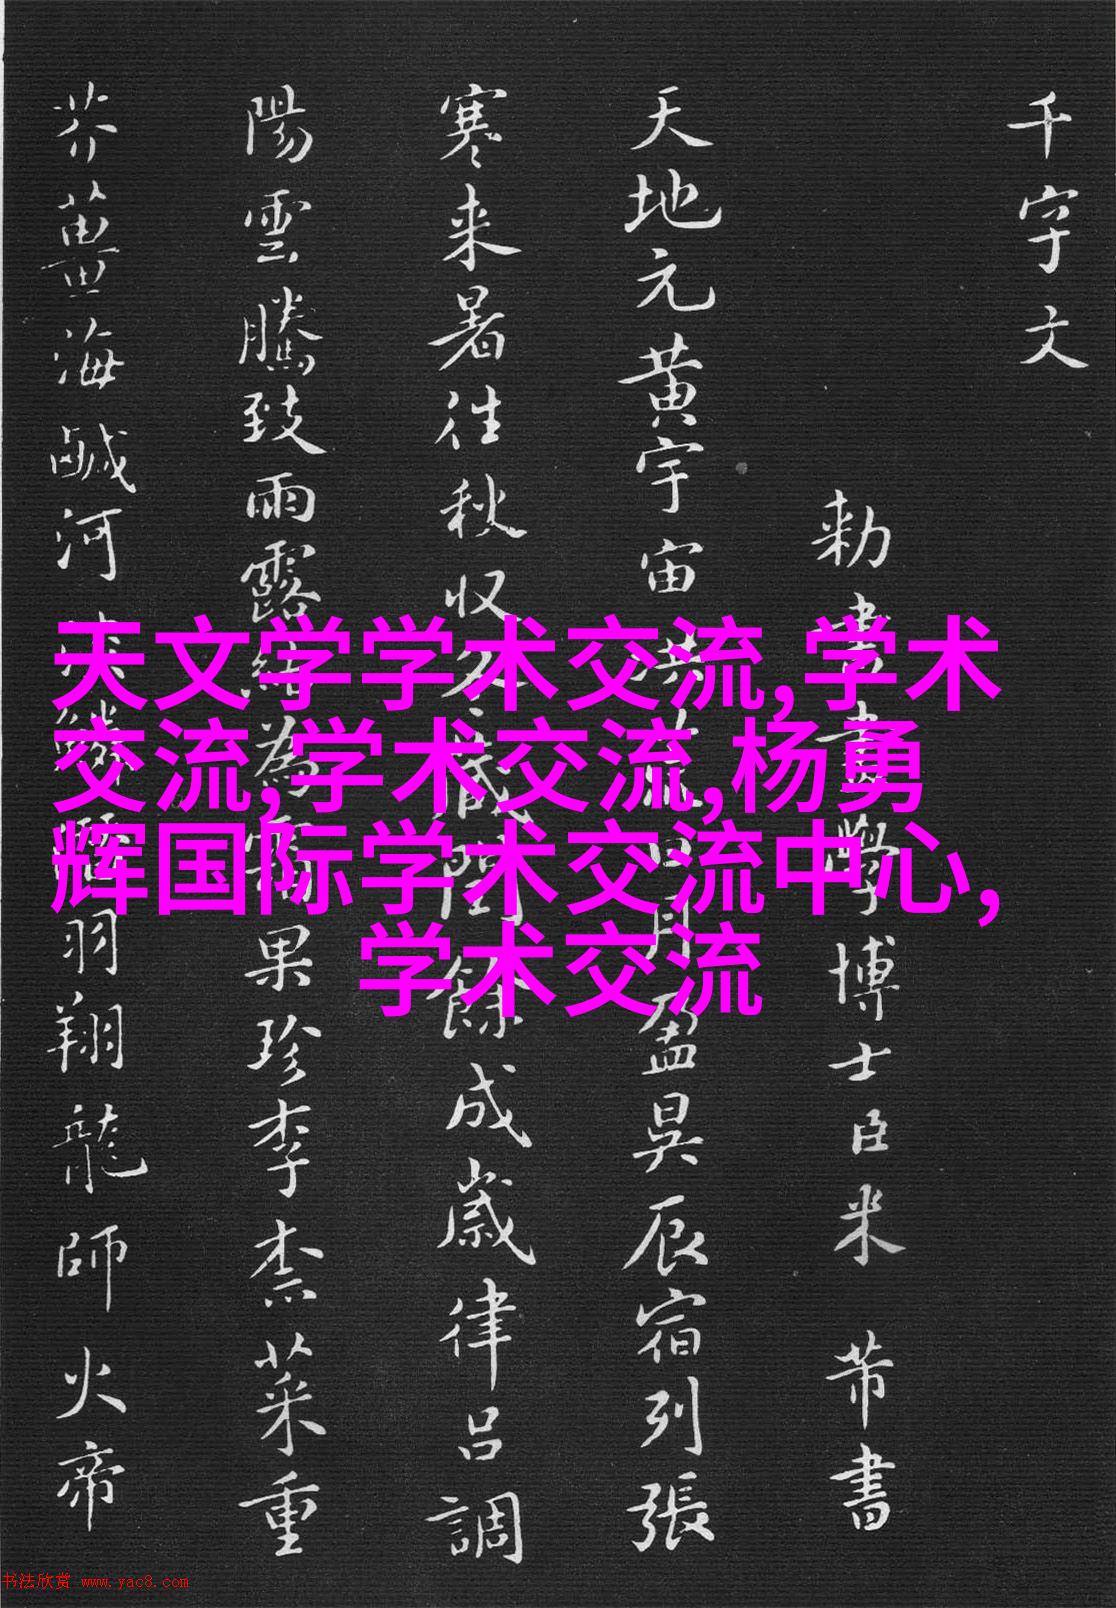 千字文
勅書畫學博士臣米芾書
天地元黄宇宙洪荒日月盈昃辰宿列張
寒来暑往秋収冬蔵閏餘成歲律吕調
陽雲騰致雨露結為霜果珍李柰菜重
芥薑海鹹河淡鱗潛羽翔龍師火帝
天文学学术交流,学术
交流,学术交流,杨勇
辉国际学术交流中心,
学术交流
书法欣赏 www.yac8.com